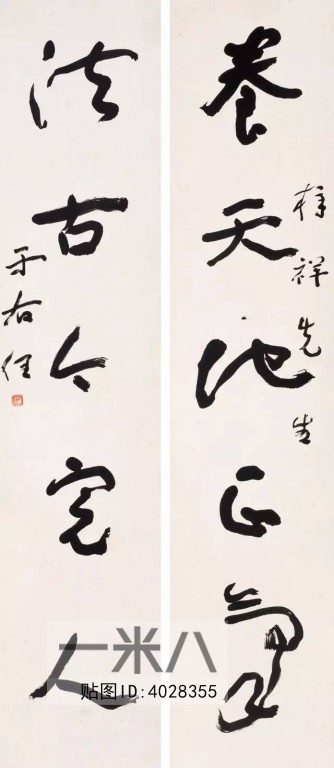 養天地正氣
祥先生
法古今完人
于右任
一米八
贴图ID:4028355